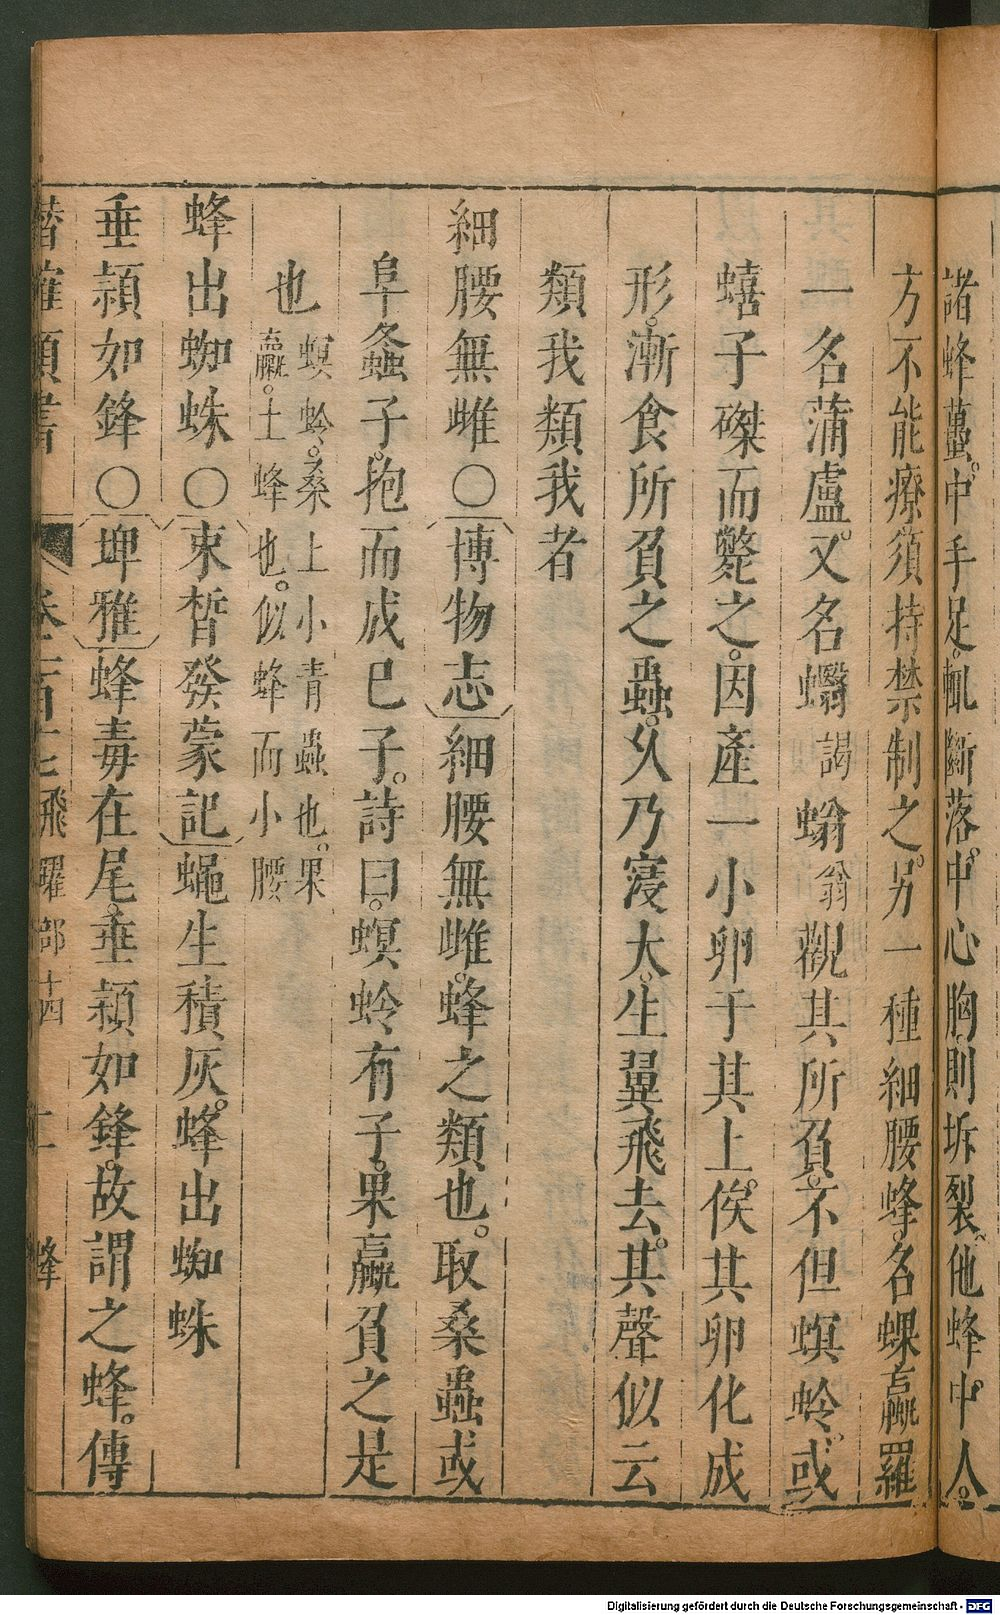 諸蜂蠆。中手足。輒斷落。中心胸。則坼裂。他蜂中人。
方不能療。須持禁制之。另一種細腰蜂。名蜾蠃羅
一名蒲盧。又名蠮謁螉翁觀其所負。不但螟蛉。或
蟢子磔而斃之。因產一小卵于其上。俟其卵化成
形。漸食所負之蟲。久乃寖大。生翼飛去。其聲似云
類我類我者
細腰無雌〇博物志細腰無雌。蜂之類也。取桑蟲或
阜螽子。抱而成已子。詩曰。螟蛉有子。果蠃負之是
也螟蛉。桑上小青蟲也。果
蠃。土蜂也。似蜂而小腰
蜂出蜘蛛〇束晳發蒙記蠅生積灰。蜂出蜘蛛
垂穎如鋒〇埤雅蜂毒在尾。垂穎如鋒。故謂之蜂。傳
潛確類書 卷一百十七飛躍部十四 蜂
Digitalisierung gefördert durch die Deutsche Forschungsgemeinschaft - DFG